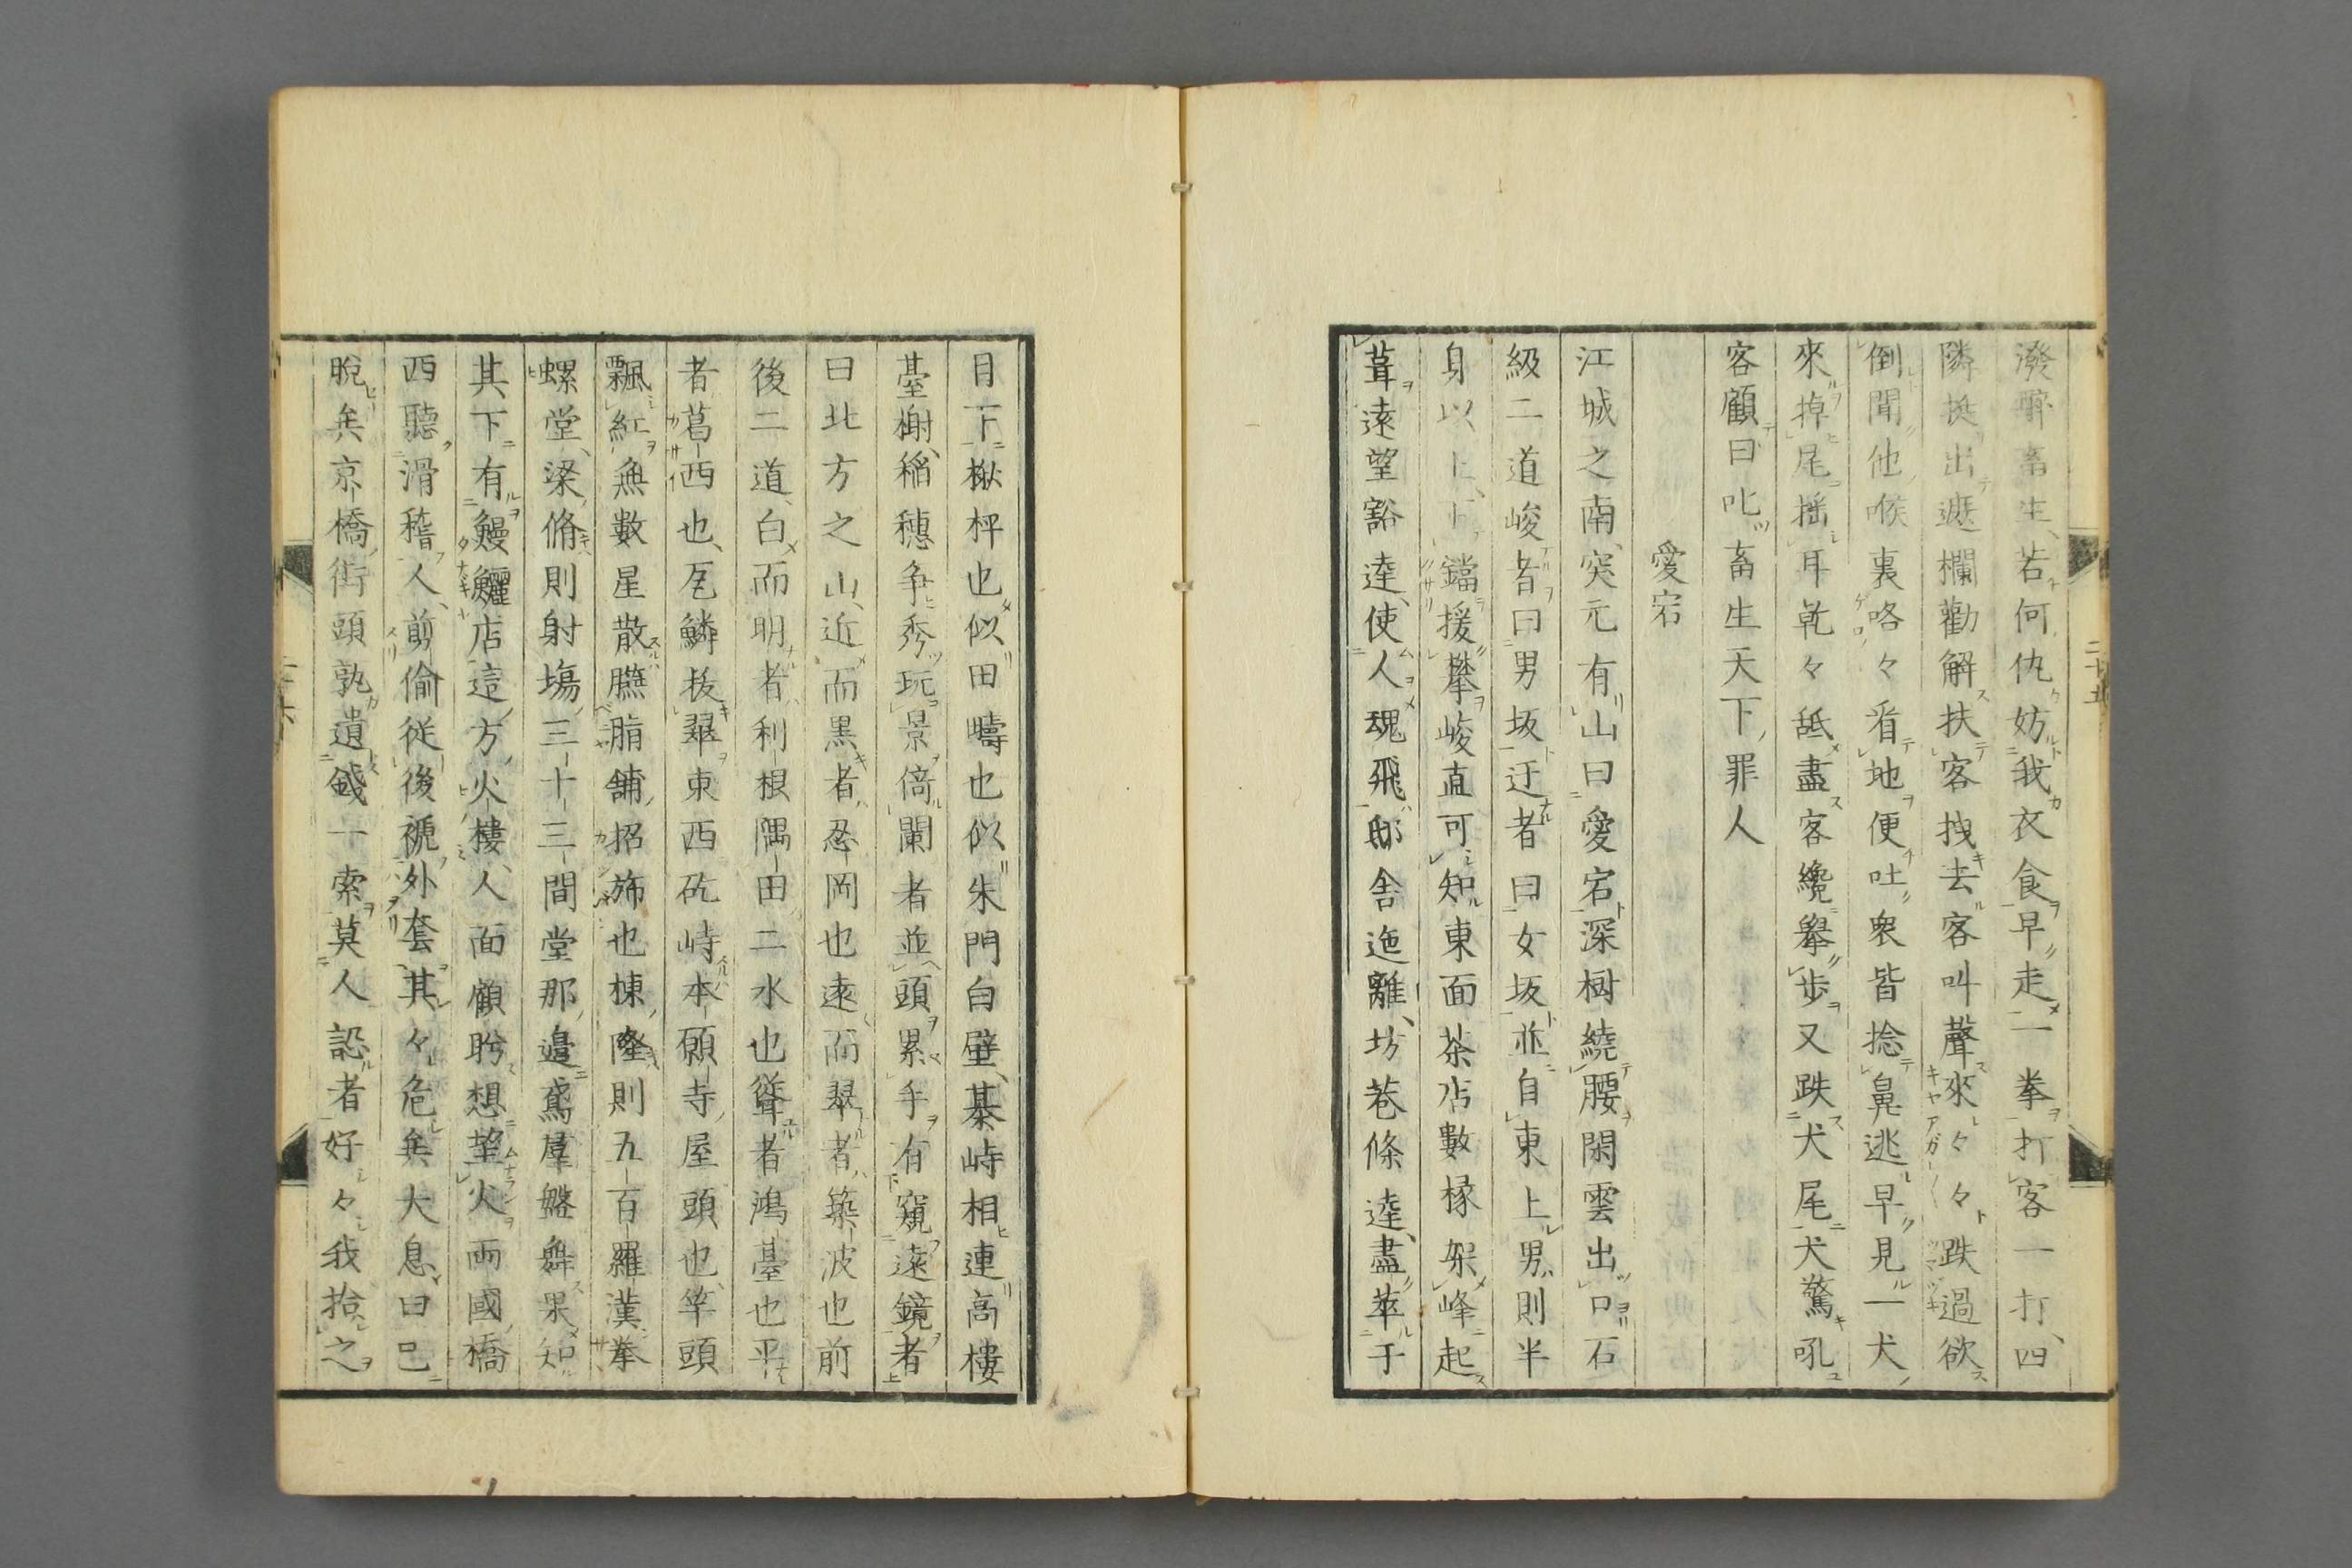 潑醉畜生、若何仇妨我衣食早走一拳打客一打、四
隣挺出遮欄勸解扶客拽去客叫聲來々々跌過欲
倒聞他喉裏咯々看地便吐衆皆捻鼻逃早見一犬
來掉尾揺耳乾々舐盡客纔擧歩又跌犬尾犬驚吼
客顧曰叱畜生天下罪人
愛宕
江城之南、突兀有山曰愛宕深樹繞腰閑雲出口石
級二道峻者曰男坂迂者曰女坂並自東上男則半
身以上、下鐺援攀峻直可知東面茶店數椽架峰起
葺遠望豁達、使人魂飛邸舎迤邐、坊巷條達、盡萃于
目下楸枰也似田疇也似朱門白壁、棊峙相連高樓
臺榭、稲穗争秀玩景倚闌者並頭累手有窺遠鏡者
曰北方之山、近而黒者忍岡也遠而翠者築波也前
後二道、白而明者利根隅田二水也聳者鴻臺也平
者葛西也、瓦鱗抜翠東西矻峙本願寺屋頭也、竿頭
飄紅無數星散臙脂舗招旆也棟隆則五百羅漢拳
螺堂、梁脩則射塲三十三間堂那邉鳶羣盤舞果知
其下有鰻鱺店這方火樓、人面顧盻想望火兩國橋
西聽滑稽人、剪偷従後褫外套其々危矣大息曰已
脫矣京橋街頭孰遺錢一索莫人認者好々我拾之
二十五